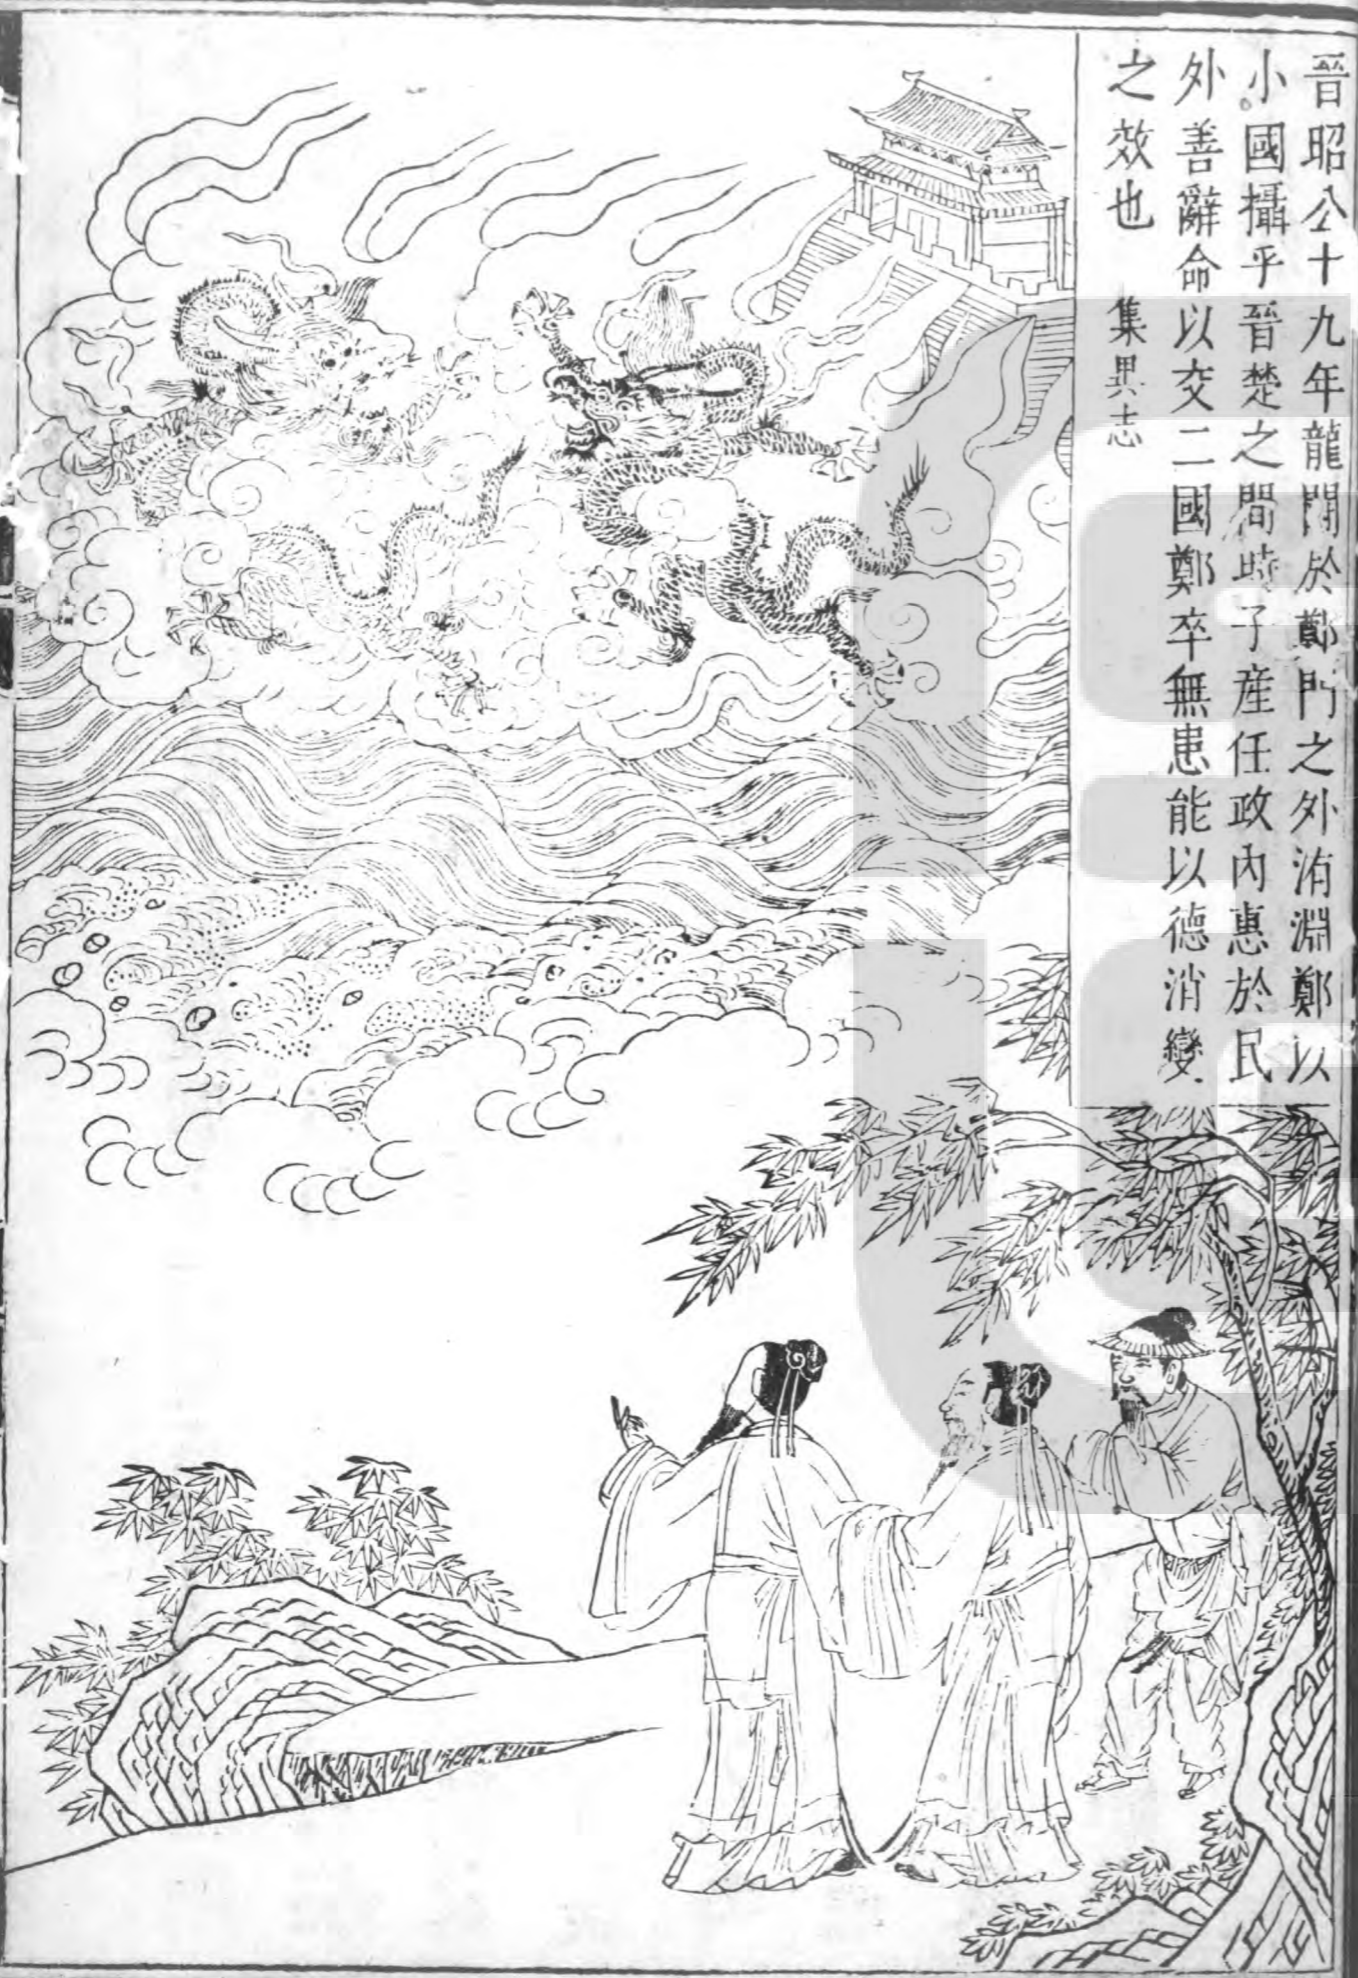 晉昭公十九年龍鬪於鄭門之外洧淵鄭以
小國攝乎晉楚之間時子產任政內惠於民
外善辭命以交二國鄭卒無患能以德消變
之效也　集異志